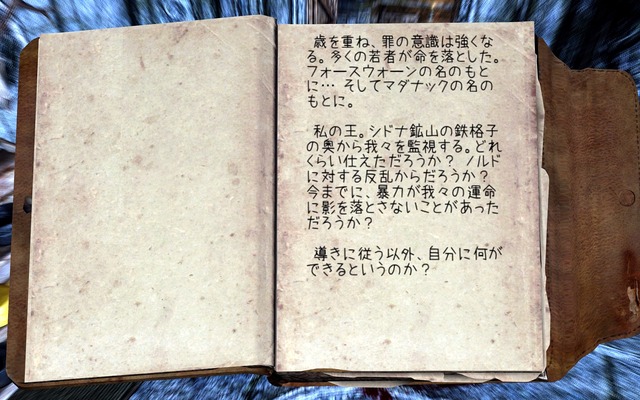 歳を重ね、罪の意識は強くな
る。多くの若者が命を落とした。
フォースウォーンの名のもと
に… そしてマダナックの名の
もとに。
私の王。シドナ鉱山の鉄格子
の奥から我々を監視する。どれ
くらい仕えただろうか？ ノルド
に対する反乱からだろうか？
今までに、暴力が我々の運命
に影を落とさないことがあった
だろうか？
導きに従う以外、自分に何が
できるというのか？